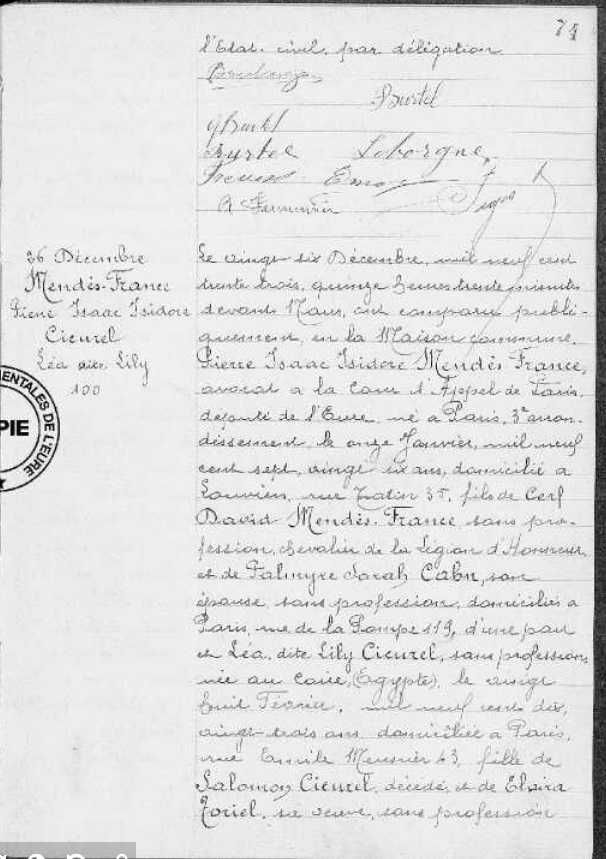 74
l'Etat-civil, par délégation
Burtel
Leborgne
26 Décembre
Mendès-France
Pierre Isaac Isidore
Cicurel
Léa dite Lily
100
ENTALES DE L'EURE
PIE
Le vingt six Décembre, mil neuf cent
trente trois, quinze heures trente minutes
devant Nous, ont comparu publi-
quement, en la Maison commune.
Pierre Isaac Isidore Mendès-France,
avocat à la Cour d'Appel de Paris,
député de l'Eure, né à Paris, 3e arron-
dissement le onze Janvier, mil neuf
cent sept, vingt six ans, domicilié à
Louviers, rue Tatin 35, fils de Cerf
David Mendès-France, sans pro-
fession, chevalier de la Légion d'Honneur,
et de Palmyre Sarah Cahn, son
épouse, sans profession, domiciliés à
Paris, rue de la Pompe 119, d'une part
et Léa, dite Lily Cicurel, sans profession,
née au Caire, (Égypte), le vingt
huit Février, mil neuf cent dix,
vingt-trois ans, domiciliée à Paris,
rue Emile Meunier 43, fille de
Salomon Cicurel, décédé, et de Elvira
Toriel, sa veuve, sans profession